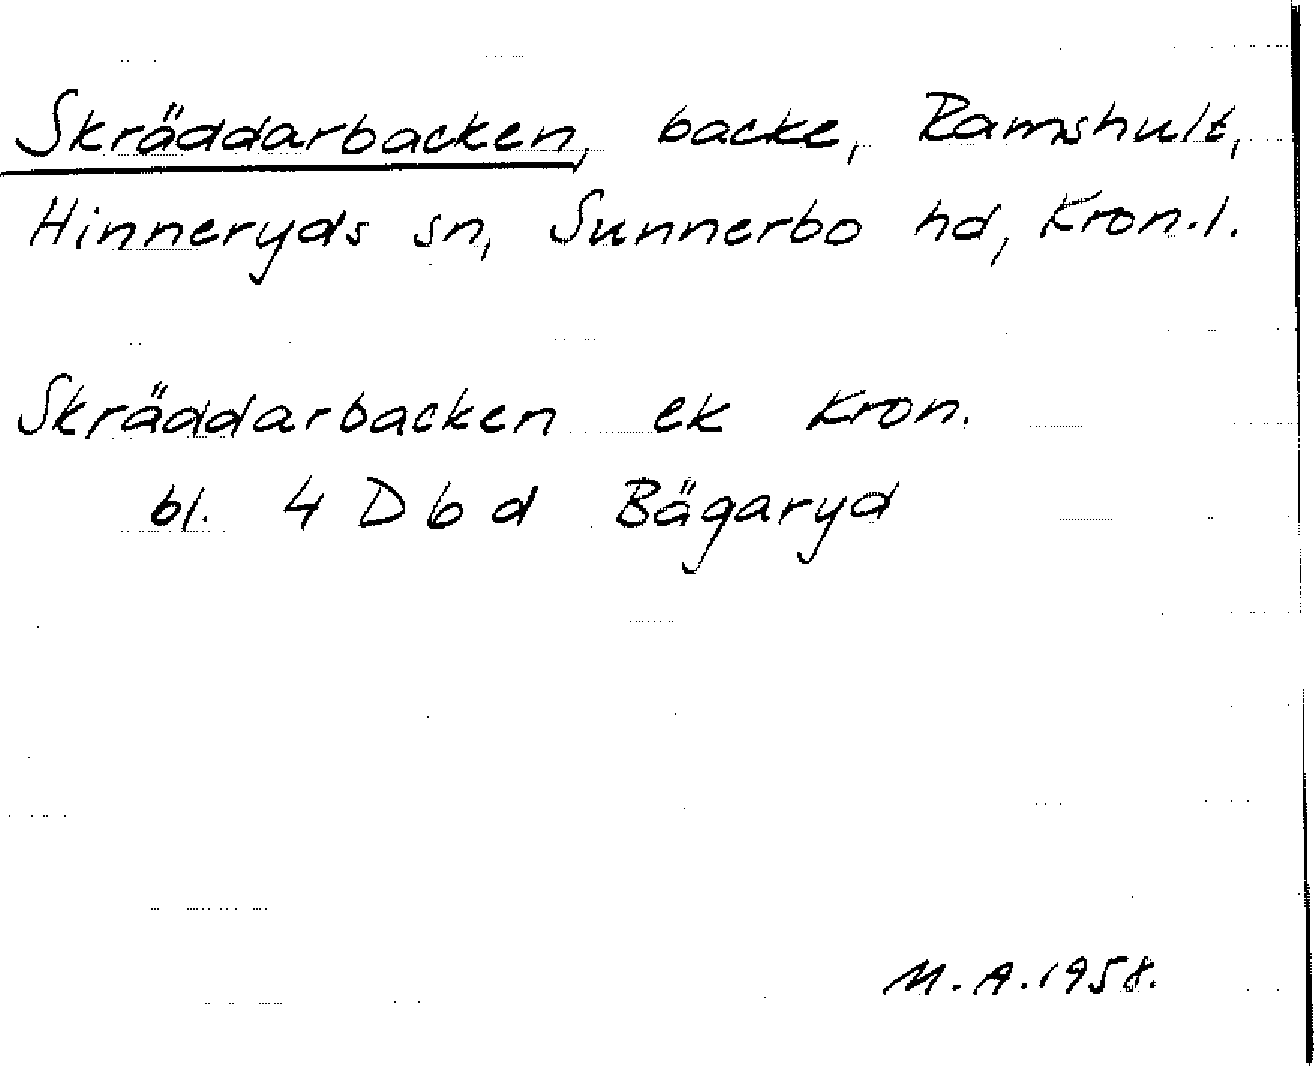 Skräddarbacken, backe, Ramshult,
Hinneryds sn, Sunnerbo hd, Kron.l.
Skräddarbacken ek Kron.
bl. 4 D b d Bägaryd
M.A.1958.